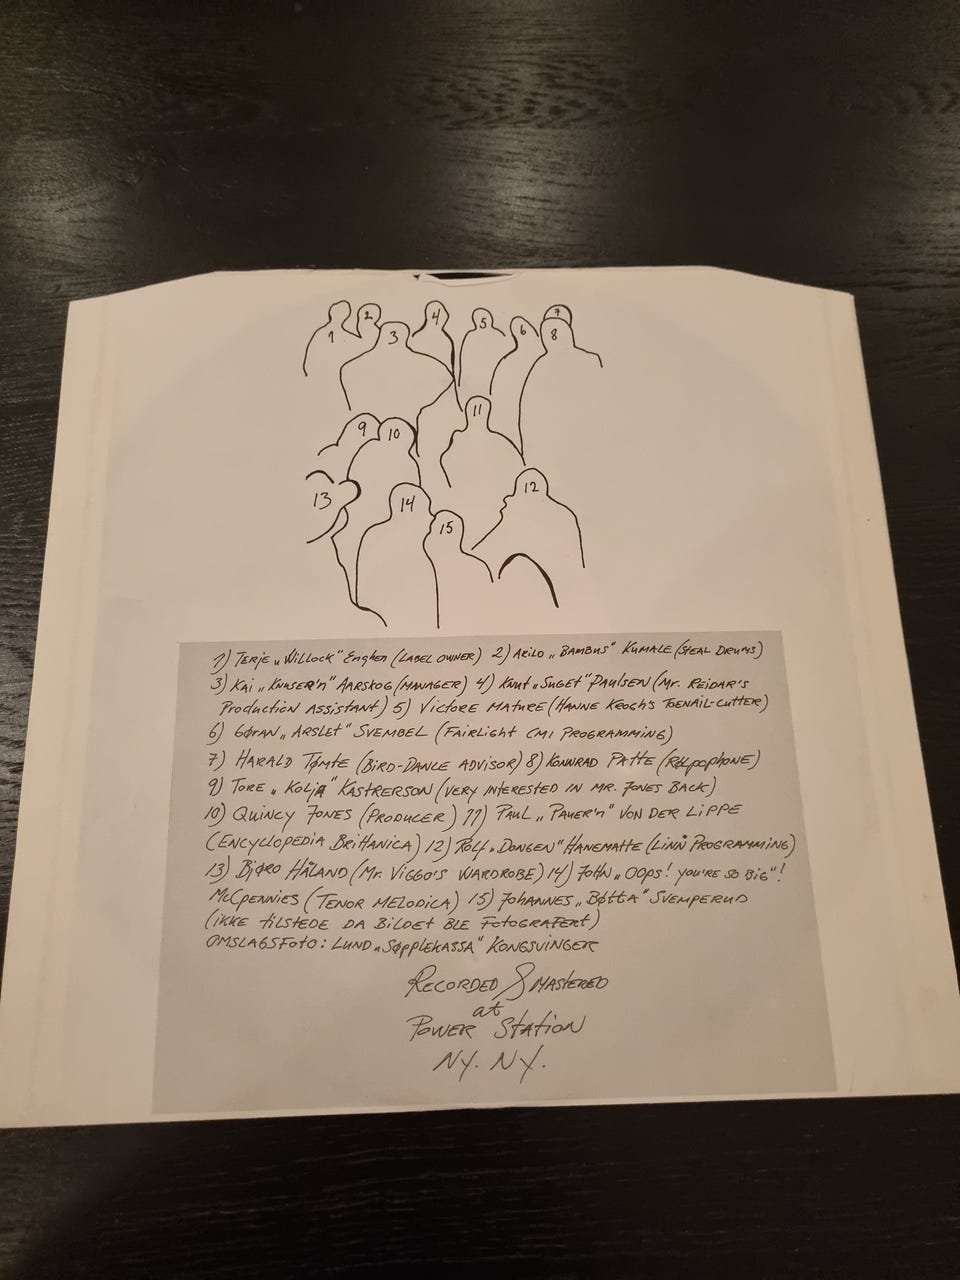 1 2 3 4 5 6 7 8
9 10 11
13 14 15 12
1) TERJE „WILLOCK" ENGHEN (LABEL OWNER) 2) ARILD „BAMBUS" KUMALE (STEAL DRUMS)
3) KAI „KNUSER'N" AARSKOG (MANAGER) 4) KNUT „SUGET" PAULSEN (MR. REIDAR'S
PRODUCTION ASSISTANT) 5) VICTORE MATURE (HANNE KROGH'S TOENAIL-CUTTER)
6) GØRAN „ARSLET" SVEMBEL (FAIRLIGHT CMI PROGRAMMING)
7) HARALD TØMTE (BIRD-DANCE ADVISOR) 8) KONNRAD PATTE (RØLPOPHONE)
9) TORE „KOLJA" KASTRERSON (VERY INTERESTED IN MR. JONES BACK)
10) QUINCY JONES (PRODUCER) 11) PAUL „PAUER'N" VON DER LIPPE
(ENCYCLOPEDIA BRITTANICA) 12) ROLF „DONGEN" HANEMATTE (LINN PROGRAMMING)
13) BJØRO HÅLAND (MR. VIGGO'S WARDROBE) 14) JOHN „OOPS! YOU'RE SO BIG"!
MCPENNIES (TENOR MELODICA) 15) JOHANNES „BØTTA" SVEMPERUD
(IKKE TILSTEDE DA BILDET BLE FOTOGRAFERT)
OMSLAGSFOTO: LUND „SØPPLEKASSA" KONGSVINGER
RECORDED & MASTERED
at
POWER STATION
NY. NY.